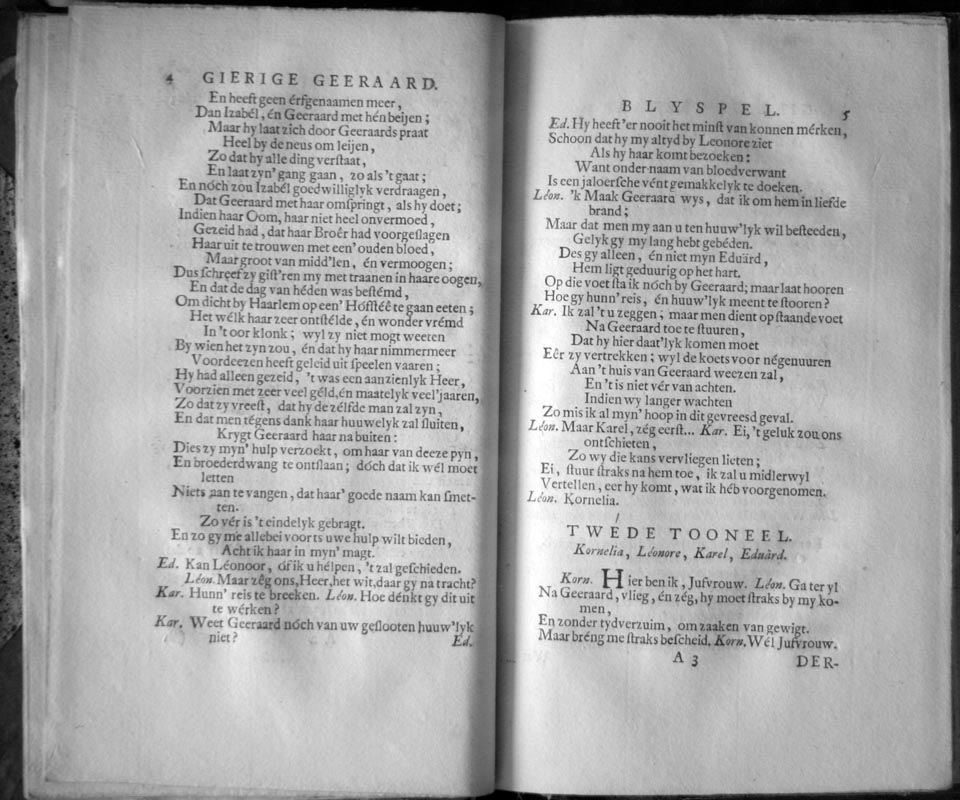 4 GIERIGE GEERAARD.
En heeft geen érfgenaamen meer,
Dan Izabél, én Geeraard met hén beijen;
Maar hy laat zich door Geeraards praat
Heel by de neus om leijen,
Zo dat hy alle ding verstaat,
En laat zyn' gang gaan, zo als 't gaat;
En nóch zou Izabél goedwilliglyk verdraagen,
Dat Geeraard met haar omspringt, als hy doet;
Indien haar Oom, haar niet heel onvermoed,
Gezeid had, dat haar Broêr had voorgeslagen
Haar uit te trouwen met een' ouden bloed,
Maar groot van midd'len, én vermoogen;
Dus schreef zy gist'ren my met traanen in haare oogen,
En dat de dag van héden was bestémd,
Om dicht by Haarlem op een' Hófstéê te gaan eeten;
Het wélk haar zeer ontstélde, én wonder vrémd
In 't oor klonk; wyl zy niet mogt weeten
By wien het zyn zou, én dat hy haar nimmermeer
Voordeezen heeft geleid uit speelen vaaren;
Hy had alleen gezeid, 't was een aanzienlyk Heer,
Voorzien met zeer veel géld, én maatelyk veel' jaaren,
Zo dat zy vreest, dat hy de zélfde man zal zyn,
En dat men tégens dank haar huuwelyk zal sluiten,
Krygt Geeraard haar na buiten:
Dies zy myn' hulp verzoekt, om haar van deeze pyn,
En broederdwang te ontslaan; dóch dat ik wél moet
letten
Niets aan te vangen, dat haar' goede naam kan smet-
ten.
Zo vér is 't eindelyk gebragt.
En zo gy me allebei voorts uwe hulp wilt bieden,
Acht ik haar in myn' magt.
Ed. Kan Léonoor, óf ik u hélpen, 't zal geschieden.
Léon. Maar zêg ons, Heer, het wit, daar gy na tracht?
Kar. Hunn' reis te breeken. Léon. Hoe dénkt gy dit uit
te wérken?
Kar. Weet Geeraard nóch van uw geslooten huuw'lyk
niet?
Ed.
BLYSPEL. 5
Ed. Hy heeft 'er nooit het minst van konnen mérken,
Schoon dat hy my altyd by Leonore ziet
Als hy haar komt bezoeken:
Want onder naam van bloedverwant
Is een jaloersche vént gemakkelyk te doeken.
Léon. 'k Maak Geeraard wys, dat ik om hem in liefde
brand;
Maar dat men my aan u ten huuw'lyk wil besteeden,
Gelyk gy my lang hebt gebéden.
Des gy alleen, én niet myn Eduärd,
Hem ligt geduurig op het hart.
Op die voet sta ik nóch by Geeraard; maar laat hooren
Hoe gy hunn' reis, én huuw'lyk meent te stooren?
Kar. Ik zal 't u zeggen; maar men dient op staande voet
Na Geeraard toe te stuuren,
Dat hy hier daat'lyk komen moet
Eêr zy vertrekken; wyl de koets voor négenuuren
Aan 't huis van Geeraard weezen zal,
En 't is niet vér van achten.
Indien wy langer wachten
Zo mis ik al myn' hoop in dit gevreesd geval.
Léon. Maar Karel, zég eerst... Kar. Ei, 't geluk zou ons
ontschieten,
Zo wy die kans vervliegen lieten;
Ei, stuur straks na hem toe, ik zal u midlerwyl
Vertellen, eer hy komt, wat ik héb voorgenomen.
Léon. Kornelia.
TWEDE TOONEEL.
Kornelia, Léonore, Karel, Eduärd.
Korn. Hier ben ik, Jufvrouw. Léon. Ga ter yl
Na Geeraard, vlieg, én zég, hy moet straks by my ko-
men,
En zonder tydverzuim, om zaaken van gewigt.
Maar bréng me straks bescheid. Korn. Wél Jufvrouw.
A 3 DER-